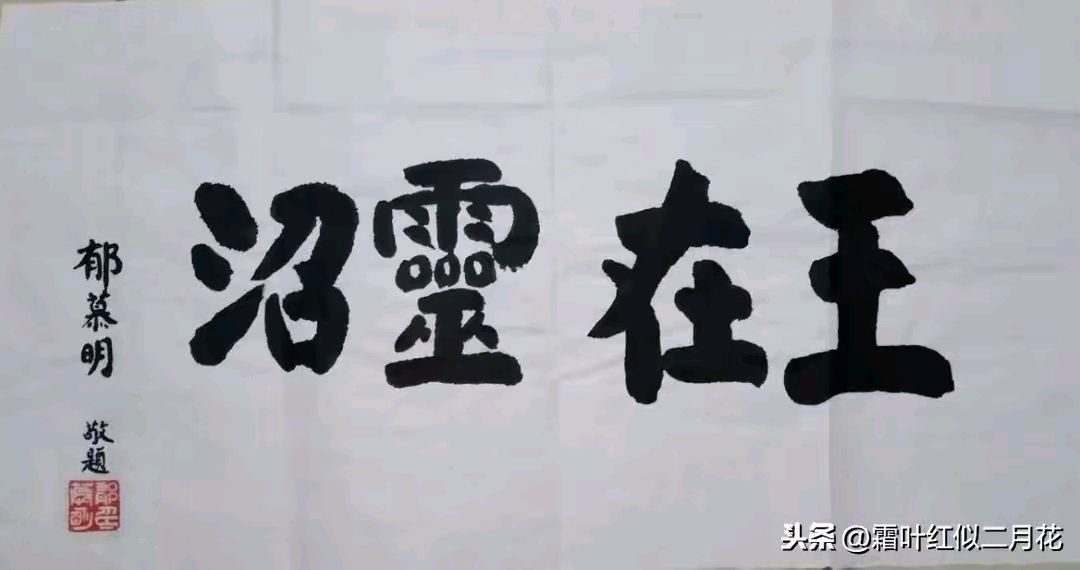 王在靈沼
郁慕明 敬題
头条 @霜叶红似二月花